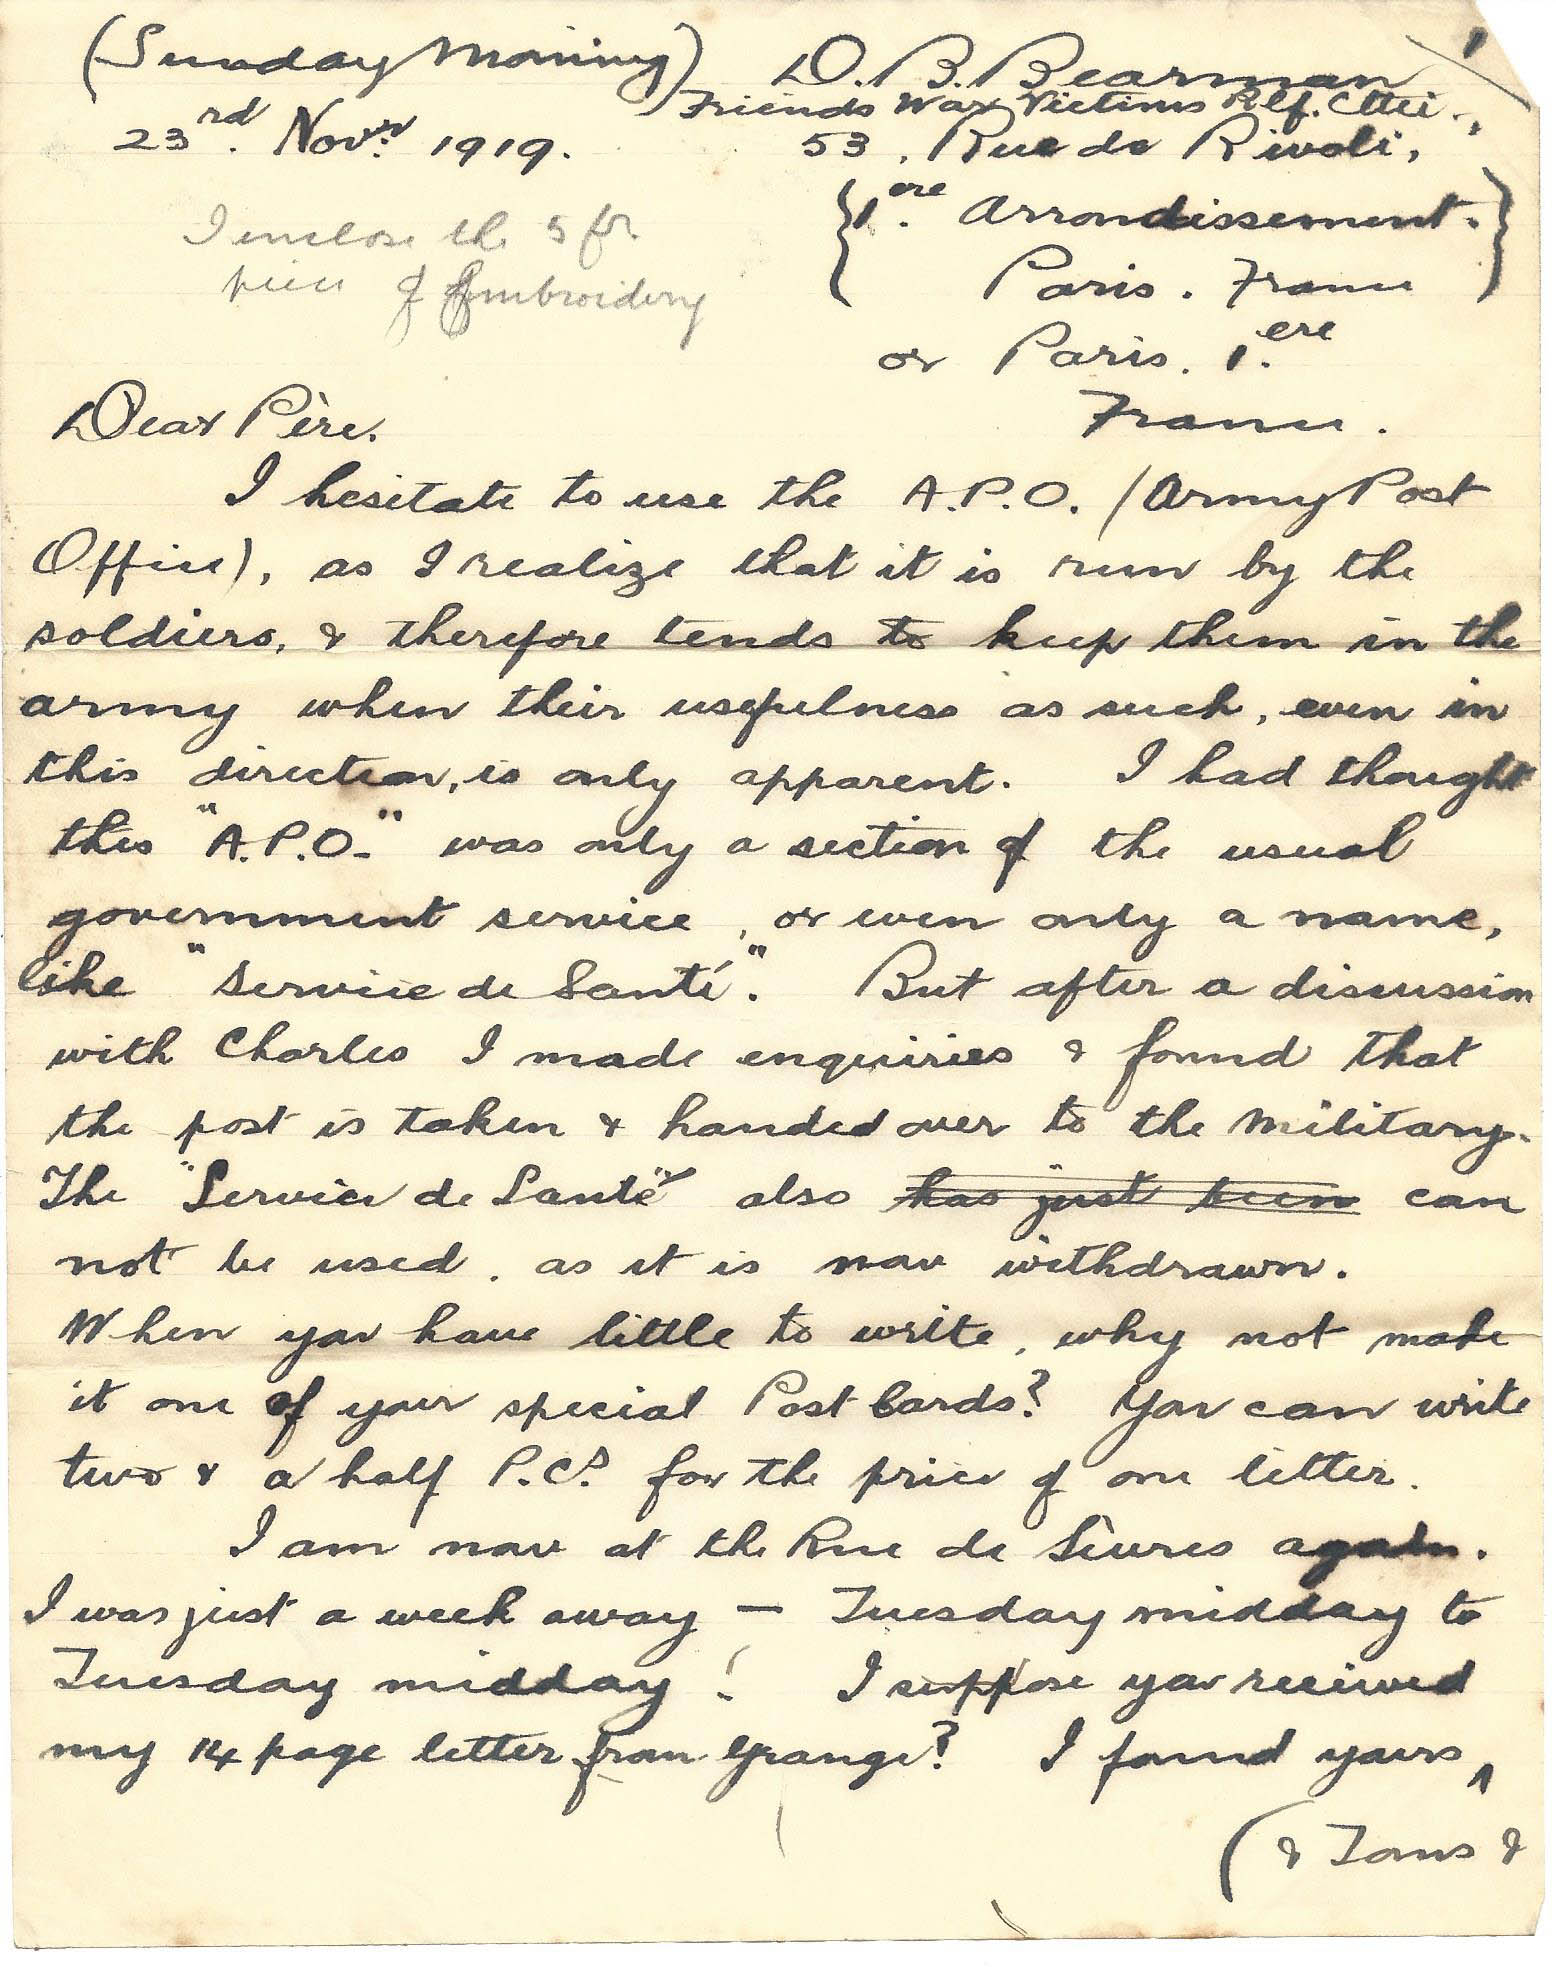 (Sunday Morning)
23rd. Novr. 1919.
1
D. B. Bearman
Friends War Victims Rlf. Cttee.,
53, Rue de Rivoli,
{1.ere Arrondissement.
Paris. France}
or Paris. 1.ere
France.
I enclose the 5 for
piece of Embroidery
Dear Père,
I hesitate to use the A.P.O. (Army Post
Office), as I realize that it is run by the
soldiers, & therefore tends to keep them in the
army when their usefulness as such, even in
this direction, is only apparent. I had thought
this "A.P.O." was only a section of the usual
government service, or even only a name,
like "Service de Santé". But after a discussion
with Charles I made enquiries & found that
the post is taken & handed over to the military.
The "Service de Santé" also has just been can
not be used, as it is now withdrawn.
When you have little to write, why not make
it one of your special Post Cards? You can write
two & a half P.Cs. for the price of one letter.
I am now at the Rue de Sèvres again.
I was just a week away — Tuesday midday to
Tuesday midday! I suppose you received
my 14 page letter from Grange? I found yours
(& Toms &